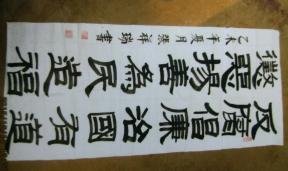 反腐倡廉治國有道
懲惡揚善為民造福
乙未年夏月張祥瑞書